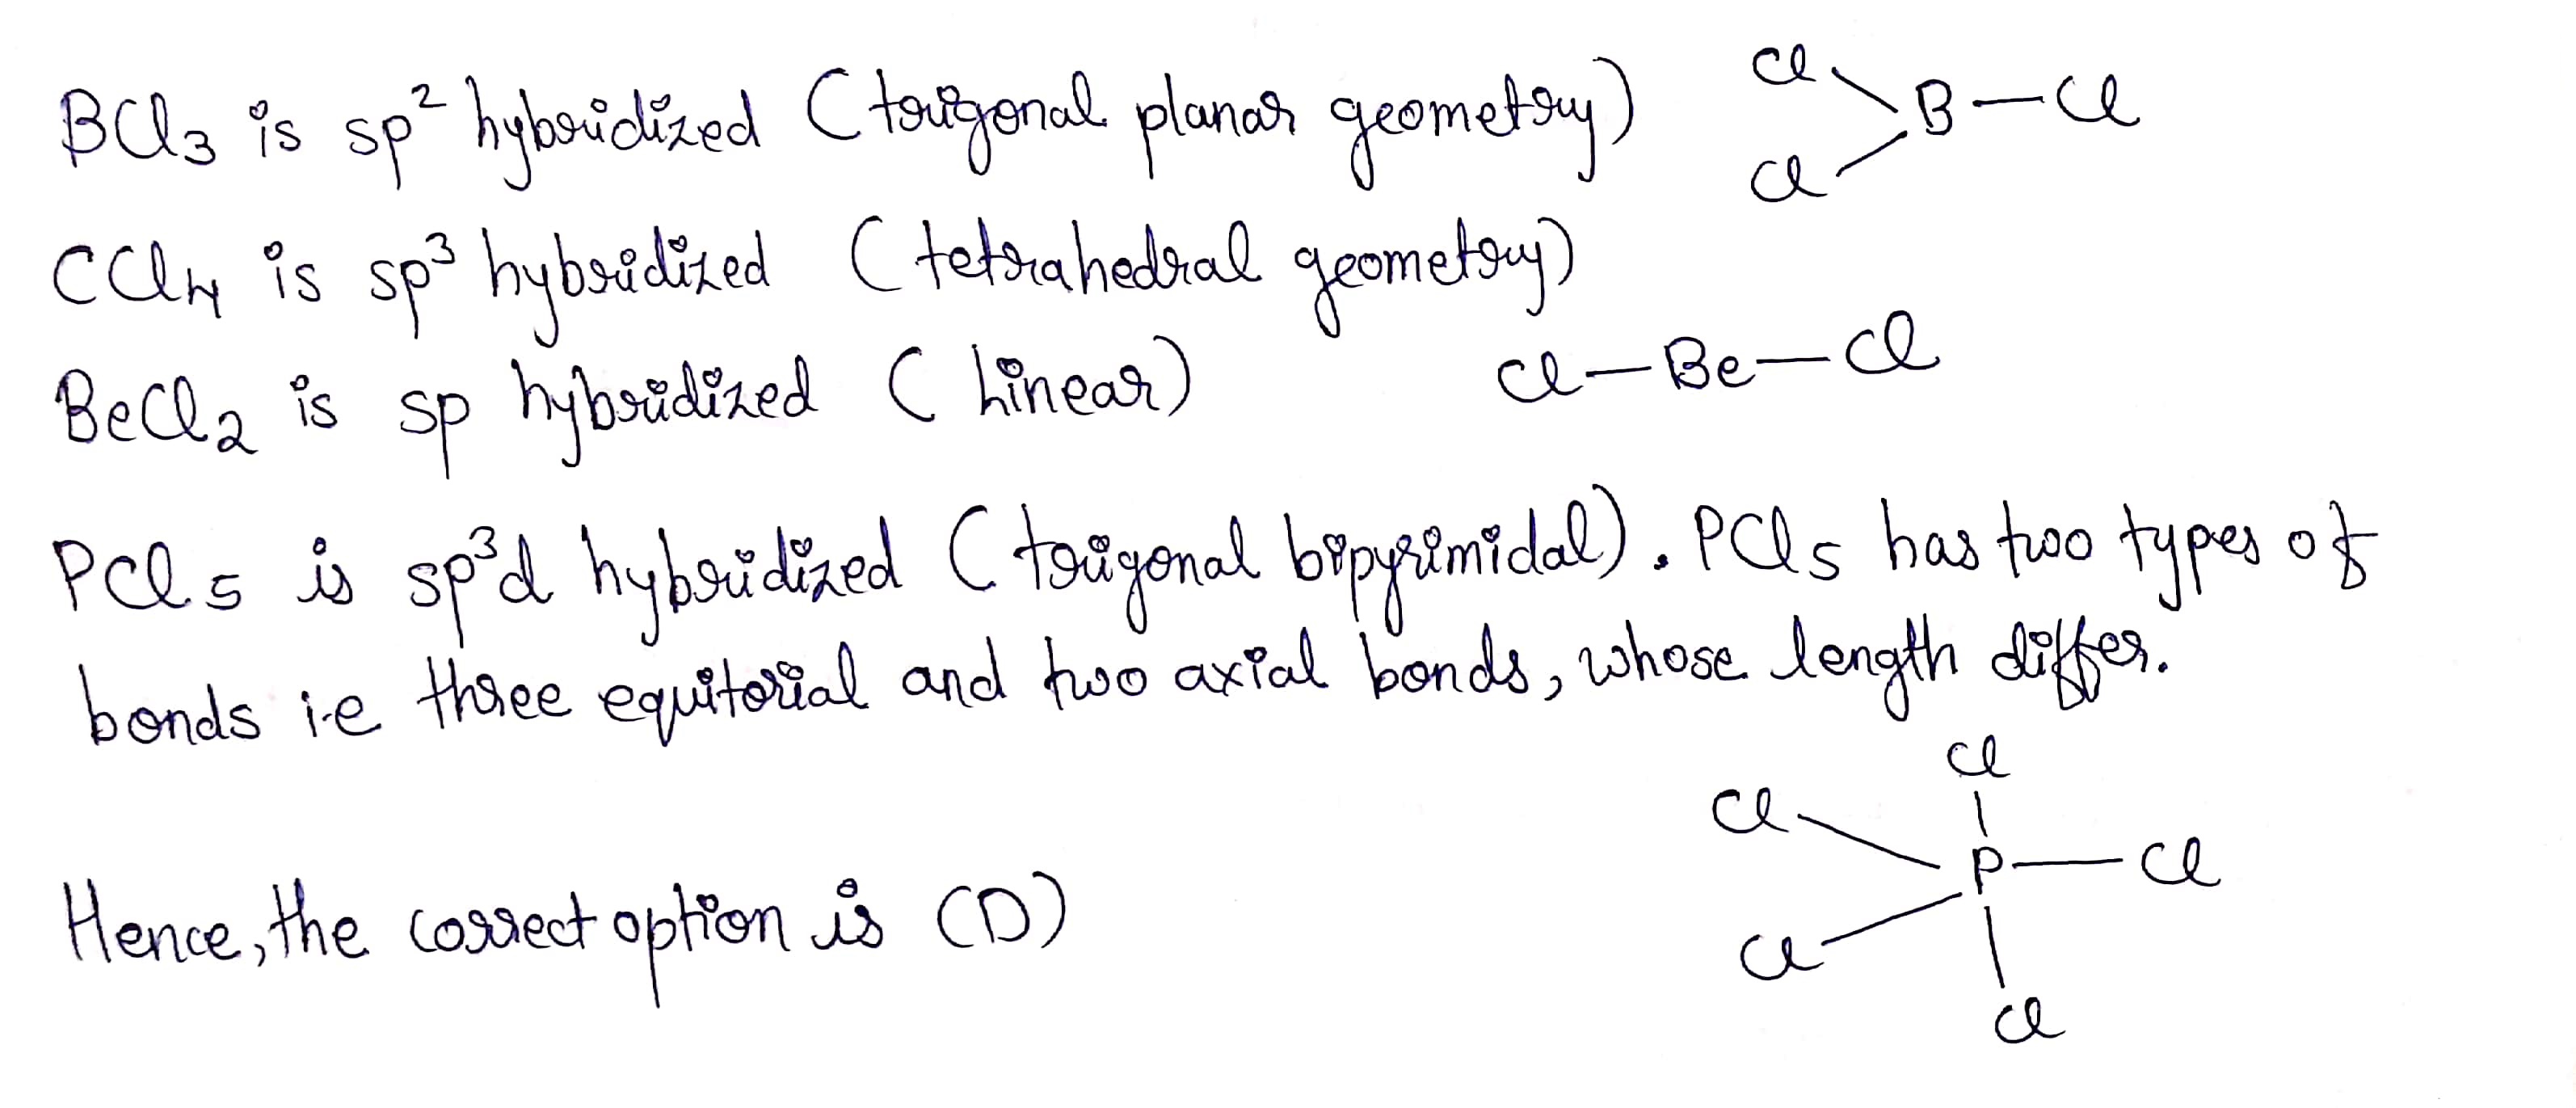 BCl3 is sp² hybridized (trigonal planar geometry)
Cl
B-Cl
Cl
CCl4 is sp³ hybridized (tetrahedral geometry)
BeCl2 is sp hybridized (Linear)
Cl-Be-Cl
PCl5 is sp³d hybridized (trigonal bipyrimidal). PCl5 has two types of
bonds i.e three equitorial and two axial bonds, whose length differ.
Cl
Cl
P-Cl
Hence, the correct option is (D)
Cl
Cl